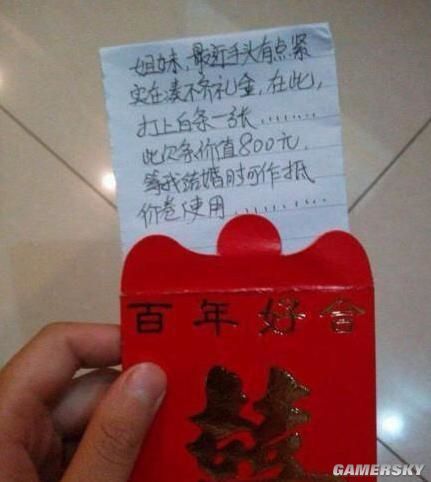 姐妹，最近手头有点紧
实在凑不齐礼金，在此，
打上白条一张........
此欠条价值800元，
等我结婚时可作抵
价卷使用..........
百年好合
囍
GAMERSKY